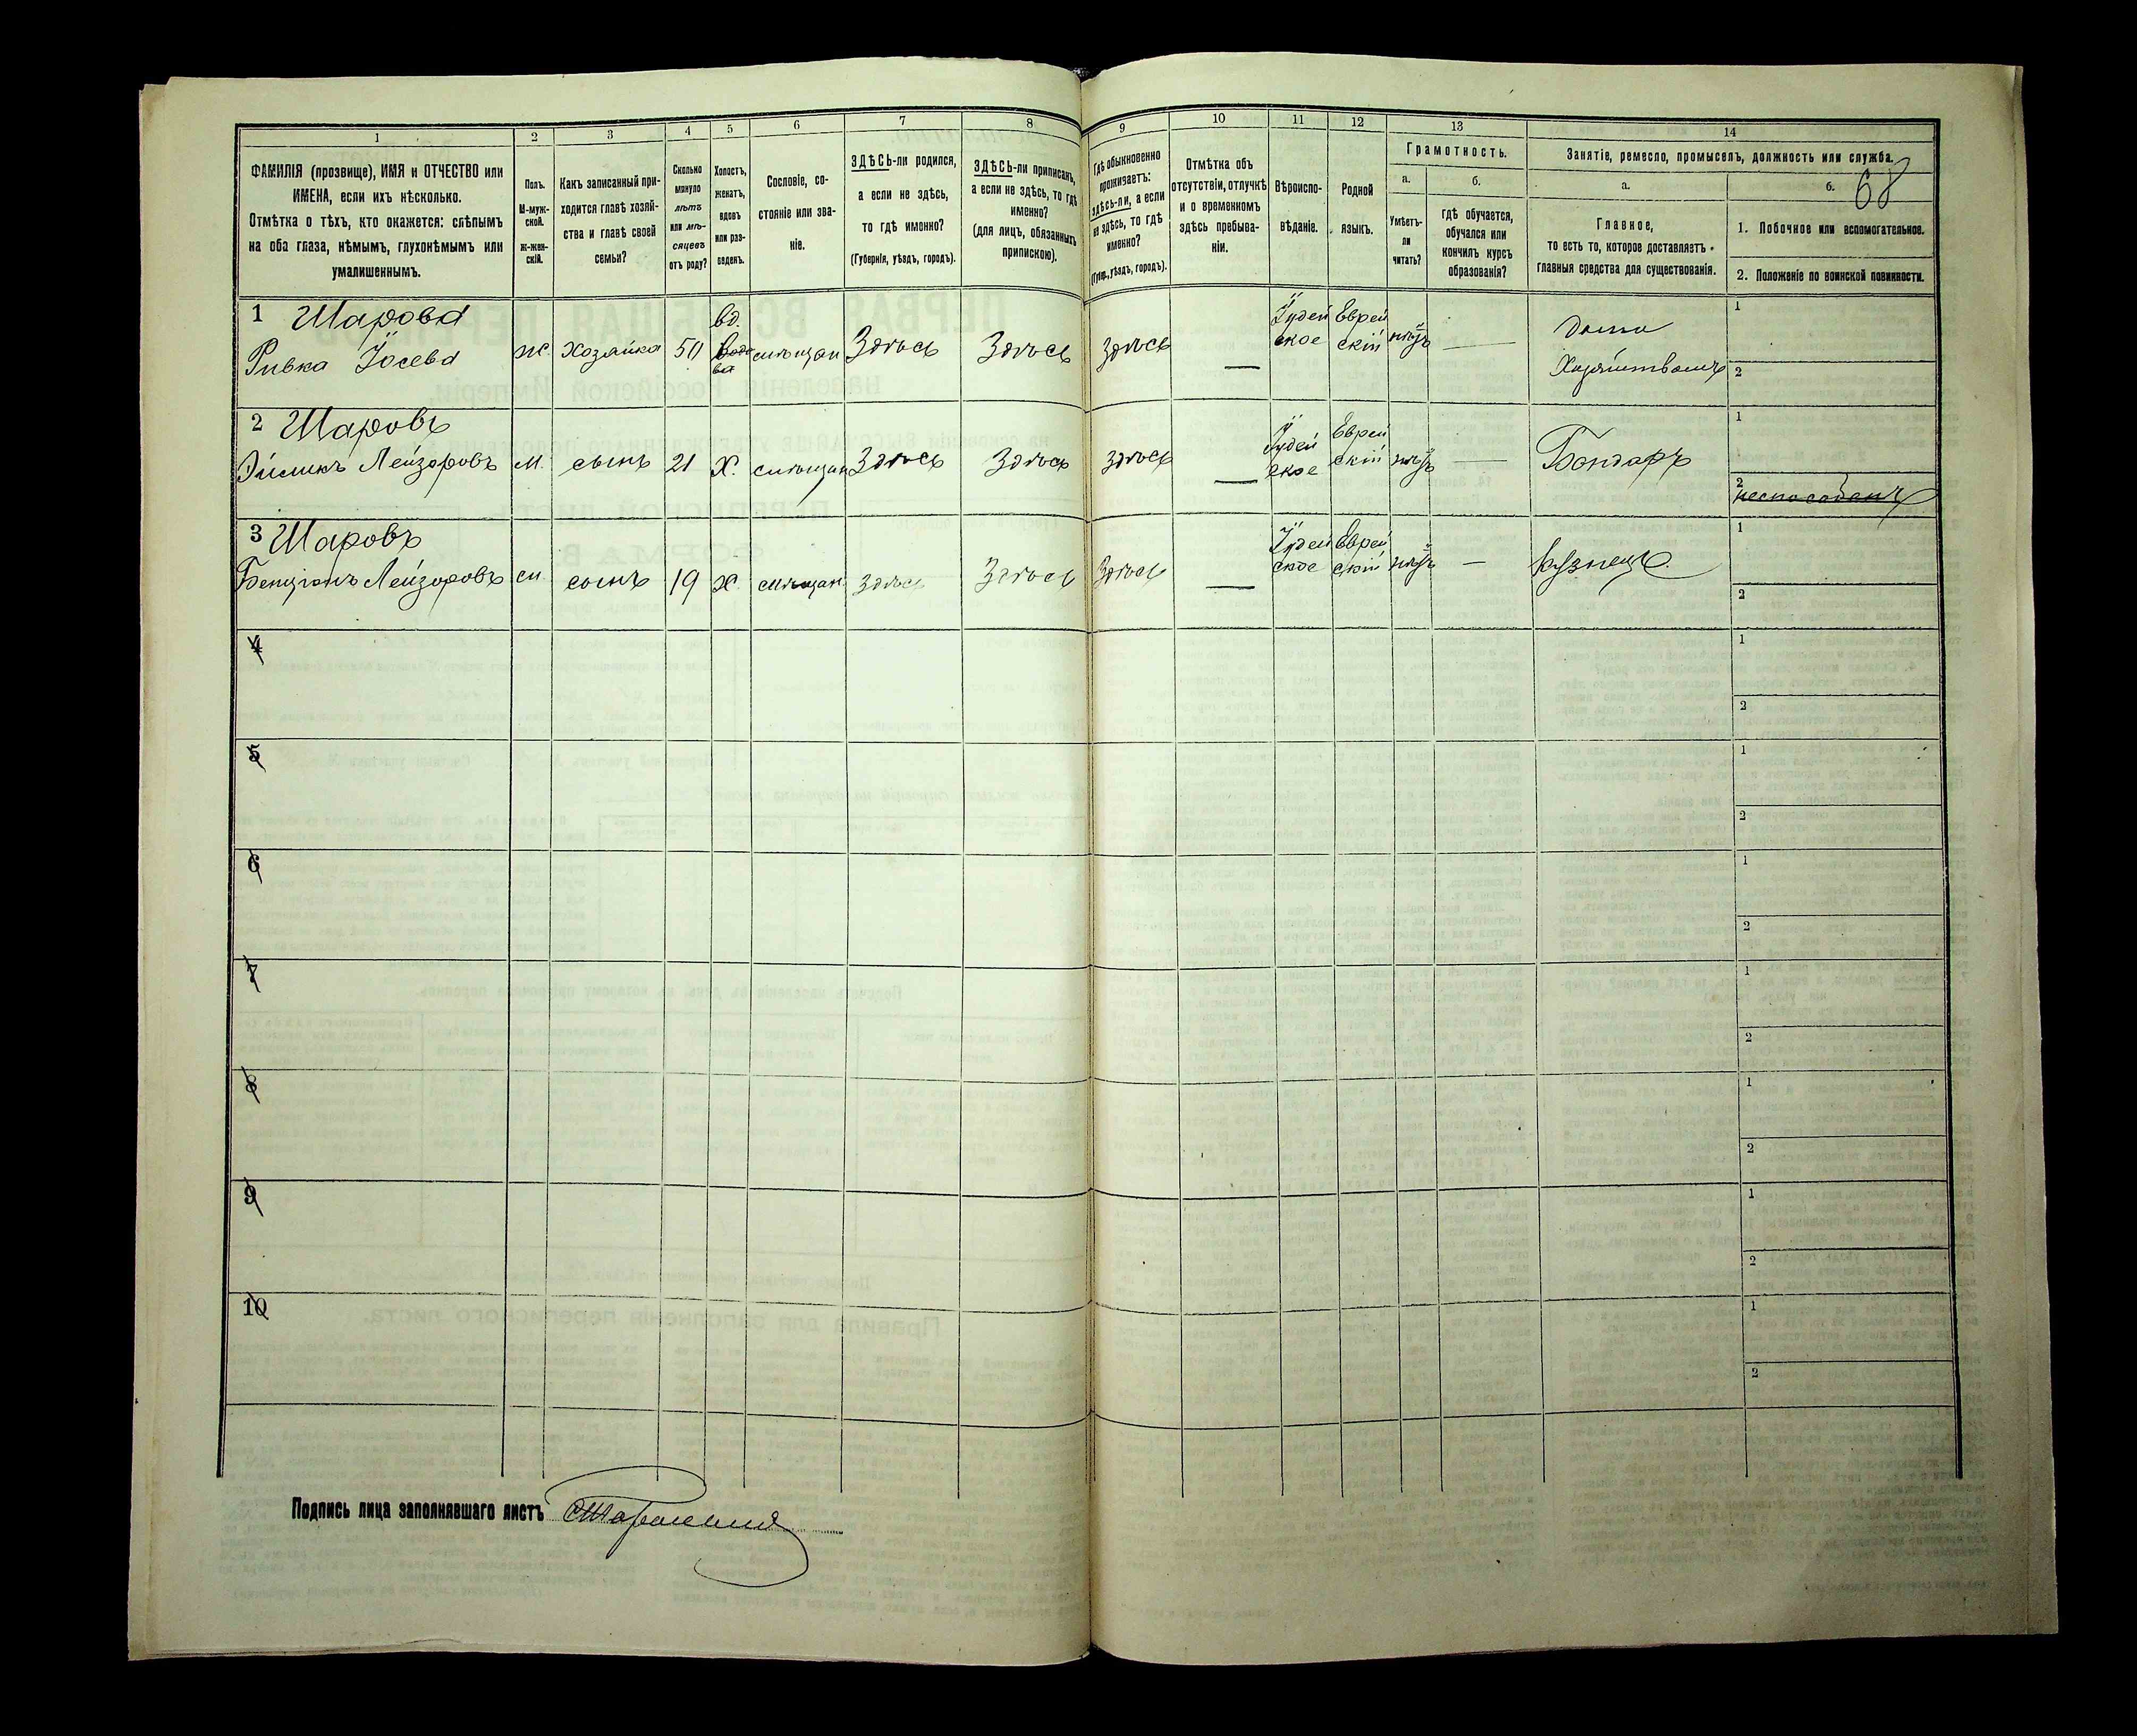 1
2
3
4
5
6
7
8
9
10
11
12
13
14
68
ФАМИЛІЯ (прозвище), ИМЯ и ОТЧЕСТВО или
ИМЕНА, если ихъ нѣсколько.
Отмѣтка о тѣхъ, кто окажется: слѣпымъ
на оба глаза, нѣмымъ, глухонѣмымъ или
умалишеннымъ.
Полъ.
М-муж-
ской.
ж-жен-
скій.
Какъ записанный при-
ходится главѣ хозяй-
ства и главѣ своей
семьи?
Сколько
минуло
лѣтъ
или мѣ-
сяцевъ
отъ роду?
Холостъ,
женатъ,
вдовъ
или раз-
веденъ.
Сословіе, со-
стояніе или зва-
ніе.
ЗДѢСЬ-ли родился,
а если не здѣсь,
то гдѣ именно?
(Губернія, уѣздъ, городъ).
ЗДѢСЬ-ли приписанъ,
а если не здѣсь, то гдѣ
именно?
(для лицъ, обязанныхъ
припискою).
Гдѣ обыкновенно
проживаетъ:
здѣсь-ли, а если
не здѣсь, то гдѣ
именно?
(Губер., уѣздъ, городъ).
Отмѣтка объ
отсутствіи, отлучкѣ
и о временномъ
здѣсь пребыва-
ніи.
Вѣроиспо-
вѣданіе.
Родной
языкъ.
Грамотность.
а.
б.
Умѣетъ-
ли
читать?
гдѣ обучается,
обучался или
кончилъ курсъ
образованія?
Занятіе, ремесло, промыселъ, должность или служба.
а.
б.
Главное,
то есть то, которое доставляетъ
главныя средства для существованія.
1. Побочное или вспомогательное.
2. Положеніе по воинской повинности.
1 Шарова
Ривка Іосева
ж.
Хозяйка
50
вд.
вдо
ва
мѣщан
Здѣсь
Здѣсь
здѣсь
—
Іудей
ское
Еврей
скій
нѣтъ
—
Домо
Хозяйствомъ
1
2
2 Шаровъ
Эйсикъ Лейзоровъ
м.
сынъ
21
х.
мѣщан
Здѣсь
Здѣсь
здѣсь
—
Іудей
ское
Еврей
скій
нѣтъ
—
Бондарь
1
2
неспособенъ
3 Шаровъ
Бенціонъ Лейзоровъ
м.
сынъ
19
х.
мѣщан.
здѣсь
Здѣсь
Здѣсь
—
Іудей
ское
Еврей
скій
нѣтъ
—
Кузнецъ.
1
2
4
1
2
5
1
2
6
1
2
7
1
2
8
1
2
9
1
2
10
1
2
Подпись лица заполнявшаго листъ